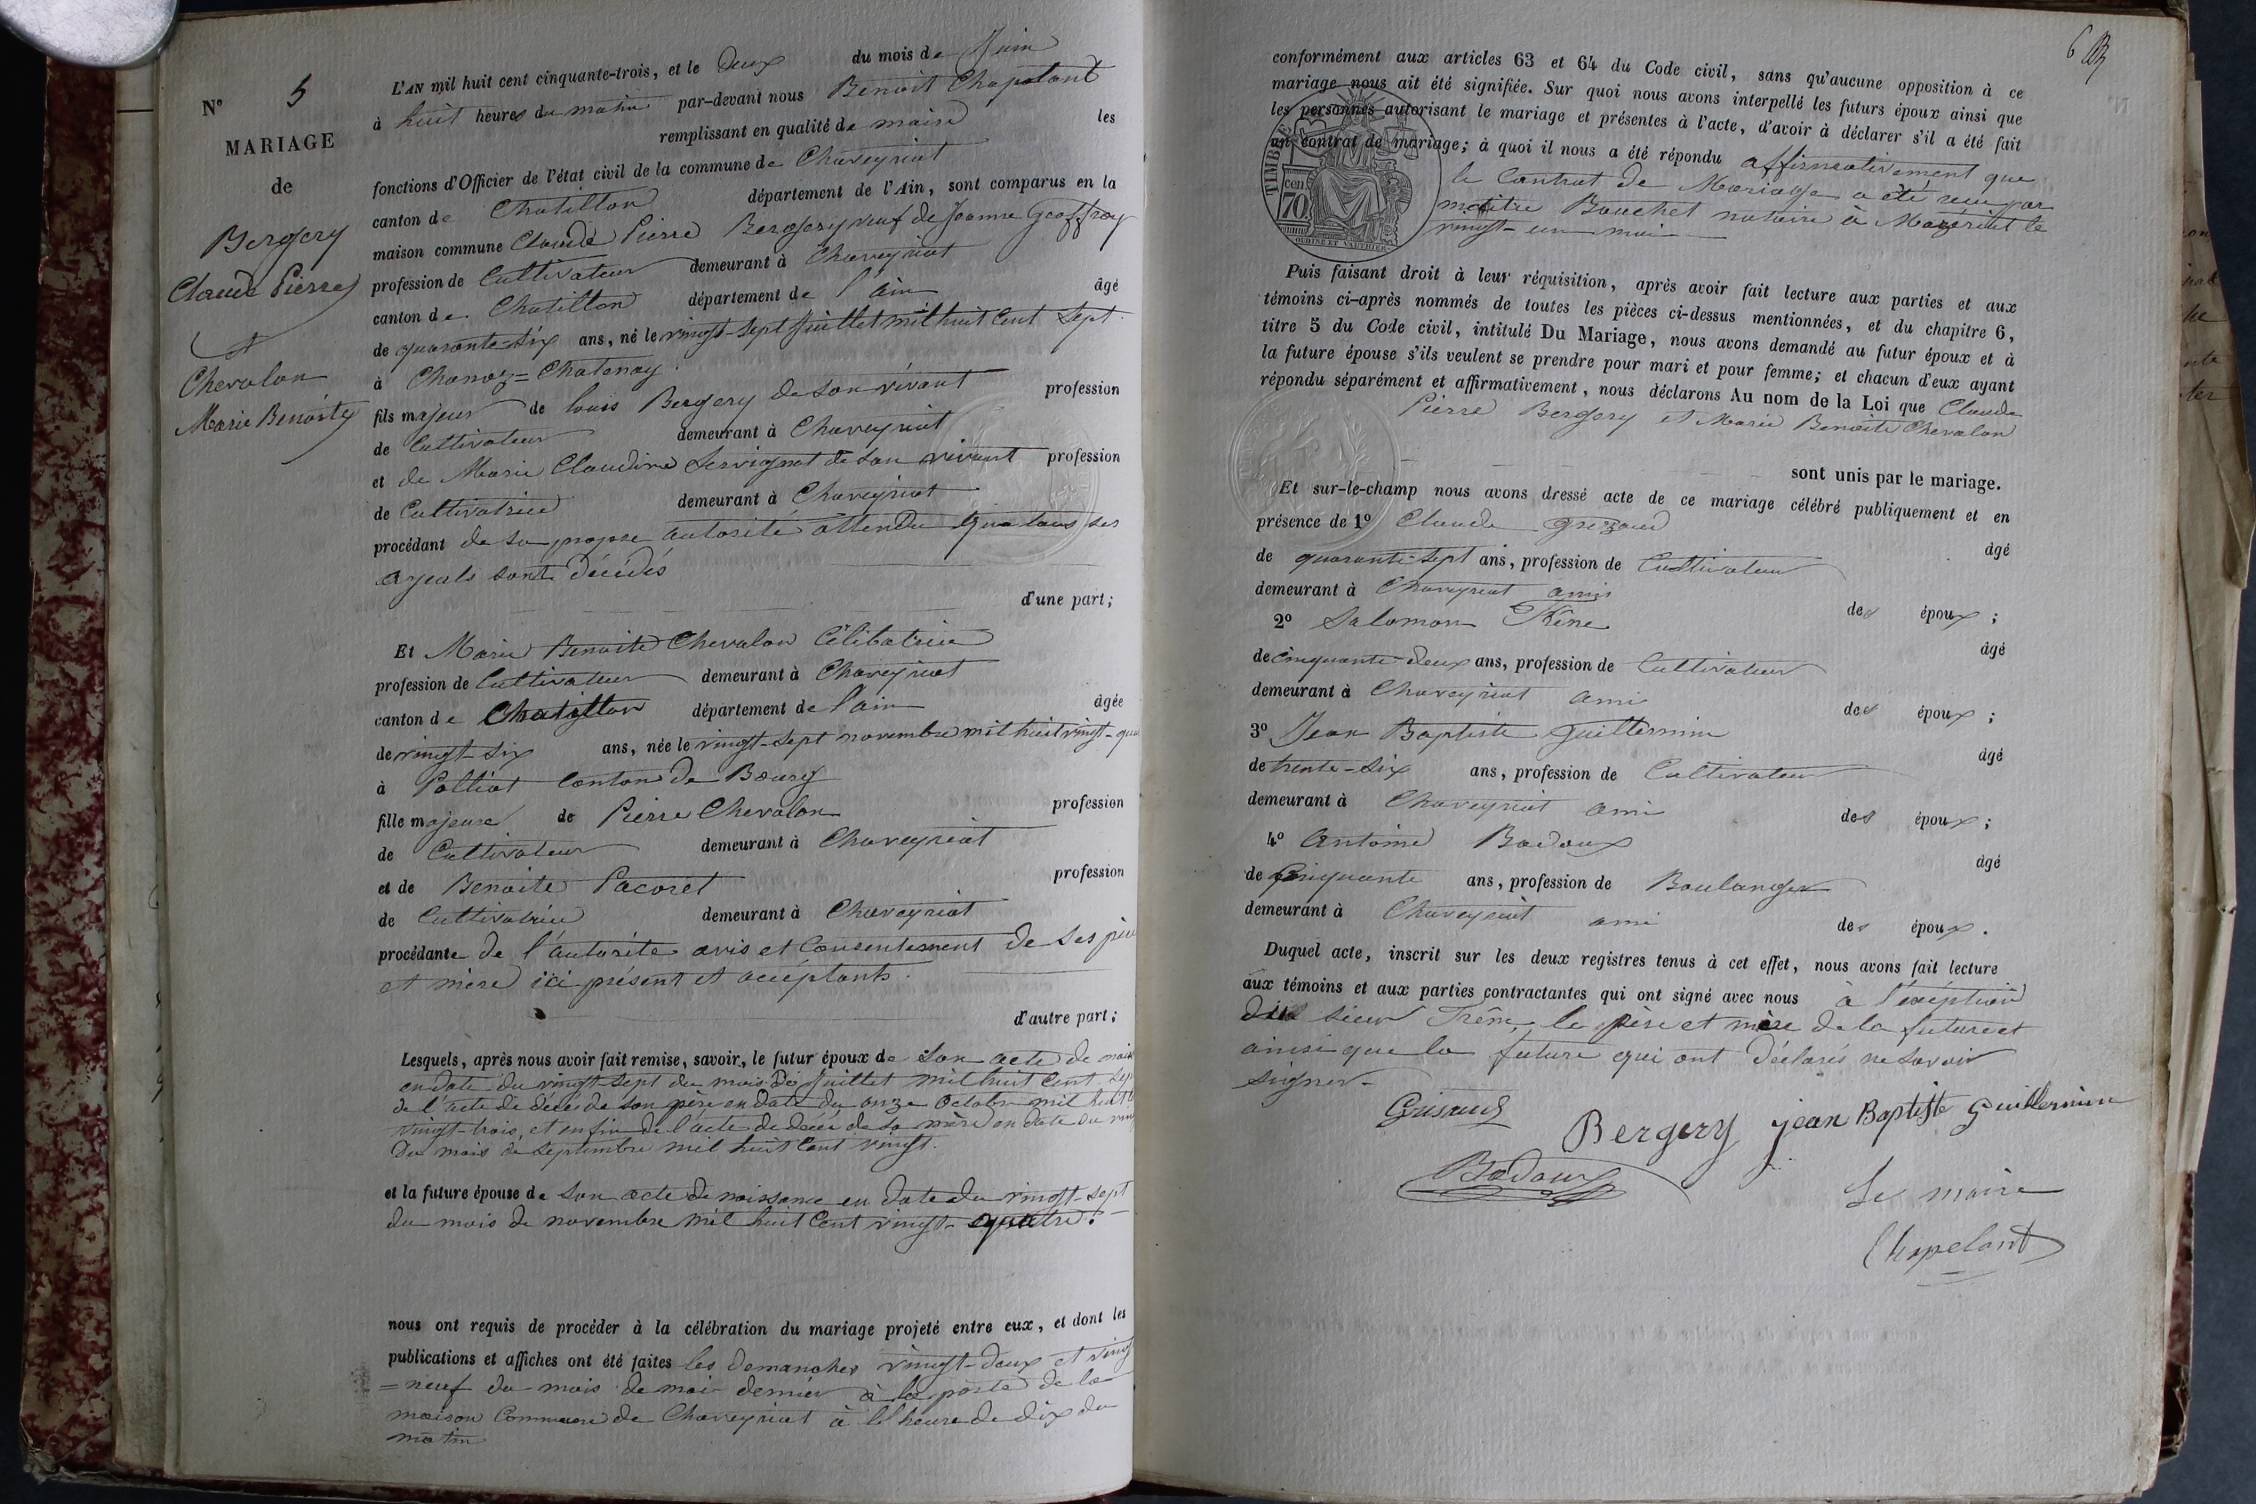 N° 5
MARIAGE
de
Bergery
Claude Pierre
et
Chevalon
Marie Benoite
L'AN mil huit cent cinquante-trois, et le Deux du mois de Juin
à huit heures du matin par-devant nous Benoit Chapelant
remplissant en qualité de maire les
fonctions d'Officier de l'état civil de la commune de Chaveyriat
canton de Chatillon département de l'Ain, sont comparus en la
maison commune Claude Pierre Bergery veuf de Jeanne Geoffray
profession de Cultivateur demeurant à Chaveyriat
canton de Chatillon département de l'ain âgé
de quarante-six ans, né le vingt-sept Juillet mil huit Cent Sept
à Chanoz=Chatenay
fils majeur de louis Bergery de son vivant profession
de Cultivateur demeurant à Chaveyriat
et de Marie Claudine Servignat de son vivant profession
de Cultivatrice demeurant à Chaveyriat
procédant de sa propre autorité attendu que tous ses
ayeuls sont décédés
d'une part;
Et Marie Benoite Chevalon Célibatrice
profession de Cultivateur demeurant à Chaveyriat
canton de Chatillon département de l'ain âgée
de vingt-six ans, née le vingt-sept novembre mil huit vingt-qua
à Polliat Canton de Bourg
fille majeure de Pierre Chevalon profession
de Cultivateur demeurant à Chaveyriat
et de Benoite Pacoret profession
de Cultivatrice demeurant à Chaveyriat
procédante de l'autorité avis et Consentement de ses père
et mère ici présent et acceptants.
d'autre part;
Lesquels, après nous avoir fait remise, savoir, le futur époux de Son acte de nais
en date du vingt-sept du mois de Juillet mil huit Cent Sep
de l'acte de décé de son père en date du onze Octobre mil huit C
vingt-trois, et enfin de l'acte de décé de sa mère en date du
Du mois de Septembre mil huit Cent vingt.
et la future épouse de Son acte de naissance en date du vingt-sept
du mois de novembre mil huit Cent vingt-quatre.
nous ont requis de procéder à la célébration du mariage projeté entre eux, et dont les
publications et affiches ont été faites les demanches vingt-deux et vingt
=neuf du mois de mai dernier à la porte de la
maison Commune de Chaveyriat à l'heure de dix du
matin
6
conformément aux articles 63 et 64 du Code civil, sans qu'aucune opposition à ce
mariage nous ait été signifiée. Sur quoi nous avons interpellé les futurs époux ainsi que
les personnes autorisant le mariage et présentes à l'acte, d'avoir à déclarer s'il a été fait
un contrat de mariage; à quoi il nous a été répondu affirmativement que
le Contrat de Mariage a été reçu par
maitre Bouchet notaire à Mezériat le
vingt-un mai
TIMBRE
cen
70.
OUDINÉ ET VAUTHIER
Puis faisant droit à leur réquisition, après avoir fait lecture aux parties et aux
témoins ci-après nommés de toutes les pièces ci-dessus mentionnées, et du chapitre 6,
titre 5 du Code civil, intitulé Du Mariage, nous avons demandé au futur époux et à
la future épouse s'ils veulent se prendre pour mari et pour femme; et chacun d'eux ayant
répondu séparément et affirmativement, nous déclarons Au nom de la Loi que Claude
Pierre Bergery et Marie Benoite Chevalon
sont unis par le mariage.
Et sur-le-champ nous avons dressé acte de ce mariage célébré publiquement et en
présence de 1° Claude Grizaud
âgé
de quarante-sept ans, profession de Cultivateur
demeurant à Chaveyriat ami des époux;
2° Salomon
âgé
de Cinquante-deux ans, profession de Cultivateur
demeurant à Chaveyriat ami des époux;
3° Jean Baptiste Guillermin
âgé
de trente-six ans, profession de Cultivateur
demeurant à Chaveyriat ami des époux;
4° Antoine Badoux
âgé
de Cinquante ans, profession de Boulanger
demeurant à Chaveyriat ami des époux.
Duquel acte, inscrit sur les deux registres tenus à cet effet, nous avons fait lecture
aux témoins et aux parties contractantes qui ont signé avec nous à l'exception
du sieur Frêne, le père et mère de la future et
ainsi que la future qui ont déclarés ne savoir
signer-
Grisaud
Bergery
jean Baptiste Guillermin
Badoux
Le maire
Chapelant